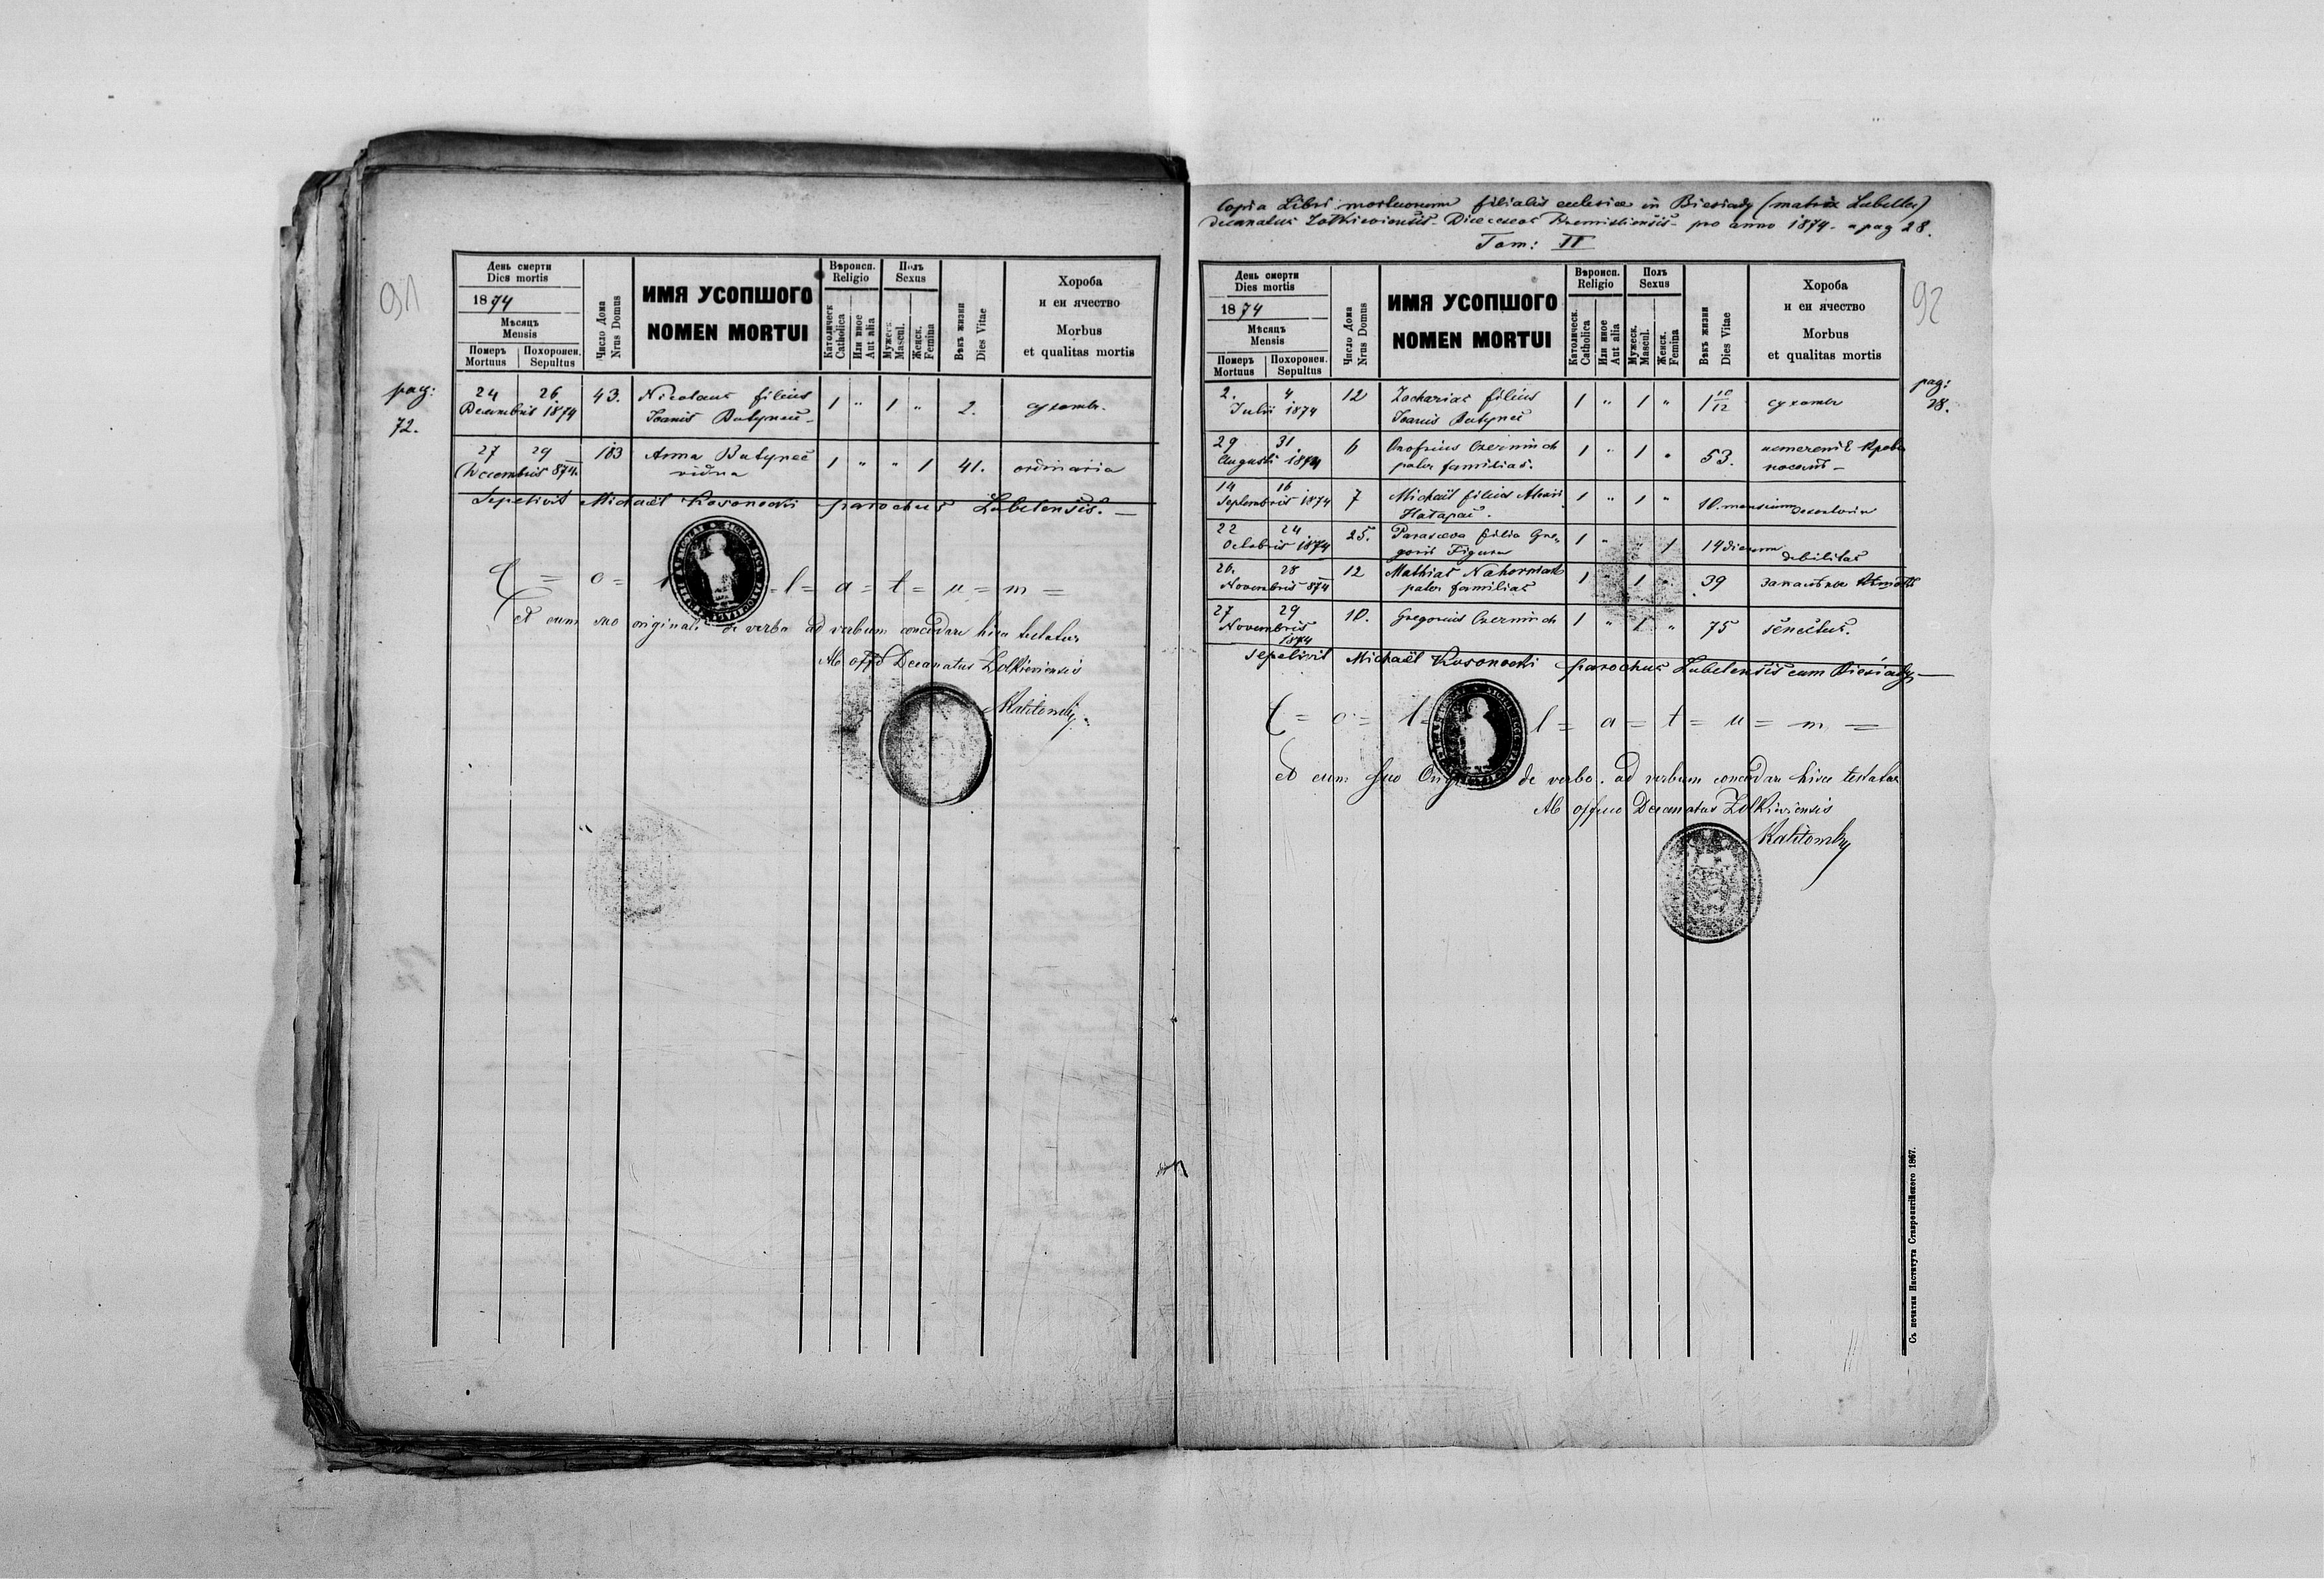 91
День смерти
Dies mortis
1874
Мѣсяцъ
Mensis
Померъ
Mortuus
Похоронен.
Sepultus
Число Дома
Nrus Domus
ИМЯ УСОПШОГО
NOMEN MORTUI
Вѣроисп.
Religio
Католическ.
Catholica
Или иное
Aut alia
Полъ
Sexus
Мужеск.
Mascul.
Женск.
Femina
Вѣкъ жизни
Dies Vitae
Хороба
и еи ячество
Morbus
et qualitas mortis
pag:
72.
24 26 43. Nicolaus filius 1 " 1 " 2. сухоты.
Decembris 1874 Joanis Butynec
27 29 183 Anna Butynec 1 " " 1 41. ordinaria
Decembris 874. vidua
Sepelivit Michaël Kosonocki parochus Lubelensis.
C = o = l = l = a = t = u = m =
et cum suo originali de verbo ad verbum concordare hisce testatur
Ab offo Decanatus Zolkieviensis
Copia Libri mortuorum filialis ecclesiae in Biesiady (matrix Lubella)
decanatus Zolkieviensis Dioeceseos Premisliensis pro anno 1874. a pag 28.
Tom: II
92
День смерти
Dies mortis
1874
Мѣсяцъ
Mensis
Померъ
Mortuus
Похоронен.
Sepultus
Число Дома
Nrus Domus
ИМЯ УСОПШОГО
NOMEN MORTUI
Вѣроисп.
Religio
Католическ.
Catholica
Или иное
Aut alia
Полъ
Sexus
Мужеск.
Mascul.
Женск.
Femina
Вѣкъ жизни
Dies Vitae
Хороба
и еи ячество
Morbus
et qualitas mortis
pag:
28.
2. 4 12 Zacharias filius 1 " 1 " 1 10/12 сухоты
Julii 1874 Joanis Butynec
29 31 6 Onofrius Czerminch 1 " 1 " 53.
Augusti 1874 pater familias.
14 16 7 Michaël filius 1 " 1 " 10. mensium
Septembris 1874 Hatapac.
22 24 25. Parasceva filia Gre- 1 " " 1 14 dierum debilitas
Octobris 1874 gorii Figura
26. 28 12 Mathias Nahorniak 1 " 1 " 39
Novembris 874 pater familias
27 29 10. Gregorius Czerminch 1 " 1 " 75 senectus.
Novembris
1874
Sepelivit Michaël Kosonocki parochus Lubelensis cum Biesiady
C = o = l = l = a = t = u = m =
et cum suo Orig de verbo ad verbum concordare hisce testatur
Ab officio Decanatus Zolkieviensis
Съ печатни Института Ставропигійского 1867.